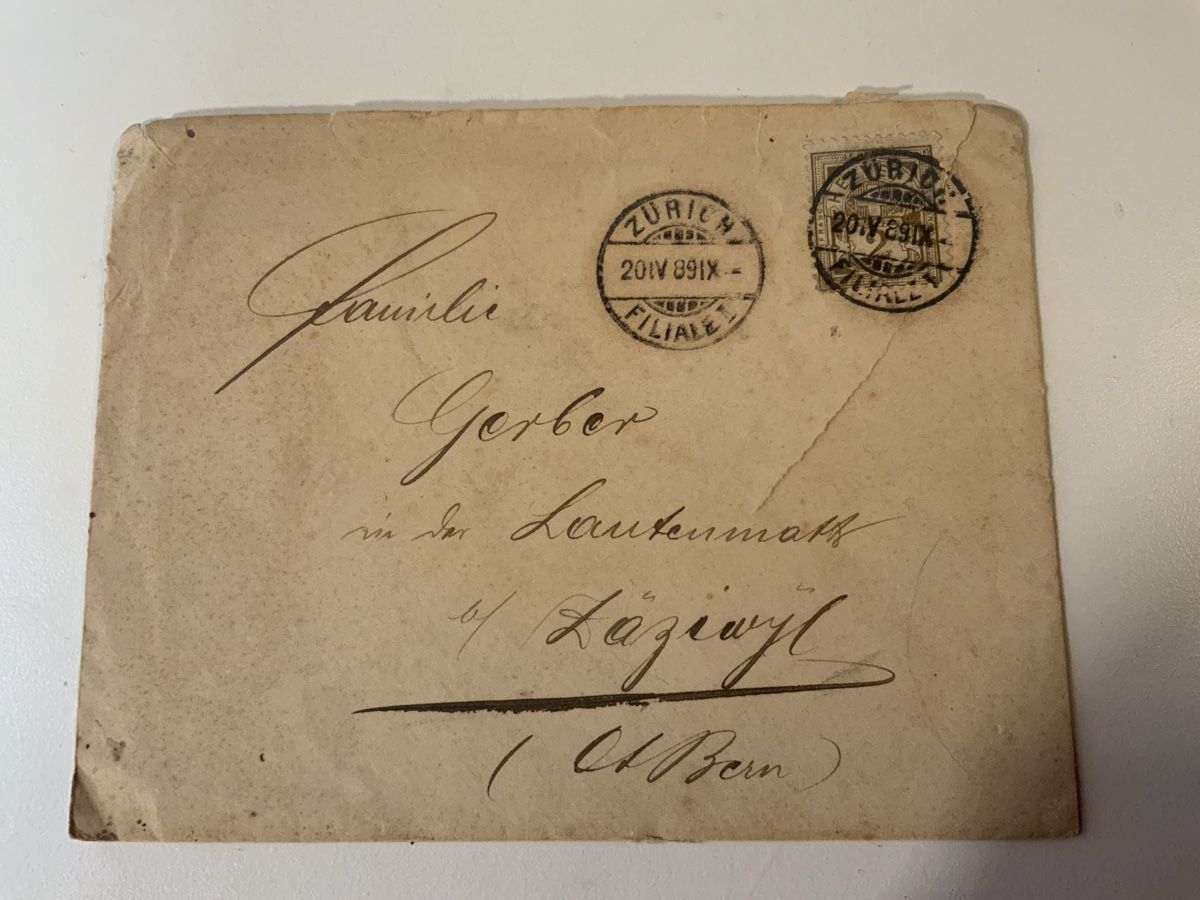 ZÜRICH
20 IV 89 IX -
FILIALE I
ZÜRICH
20 IV 89 IX -
FILIALE I
2
Familie
Gerber
in der Lautenmatt
b/ Zäziwÿl
(Ct Bern)